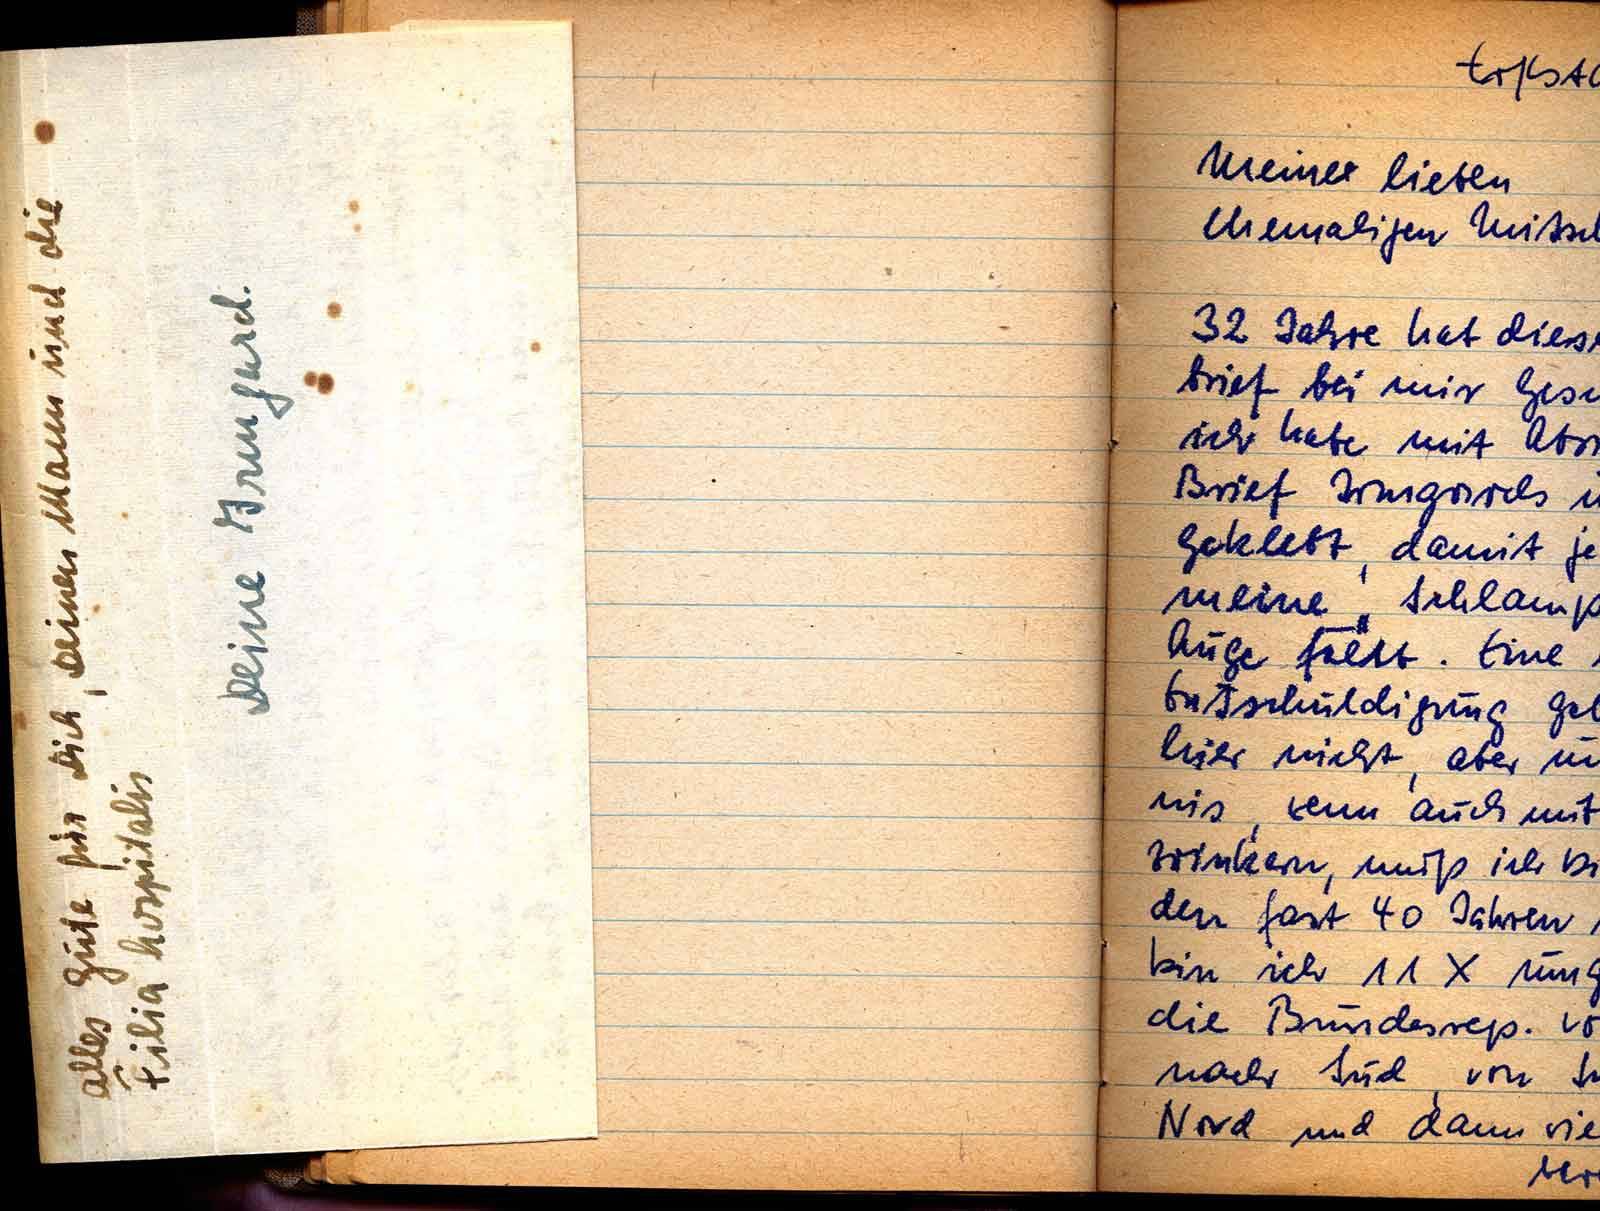 alles gute für Dich, Deinen Mann und die
Filia hospitalis
Deine Irmgard.
Meiner lieben
ehemaligen Mitsch
32 Jahre hat diese
brief bei mir
ich habe mit
Brief Irmgards
geklebt, damit je
meine "Schlamp
Auge fällt. Eine
Entschuldigung
hier nicht, aber
nis, wenn auch mit
zwinkern, muß ich
den fast 40 Jahren
bin ich 11 X umg
die Bundesrep. vo
nach Süd, von
Nord und dann vie